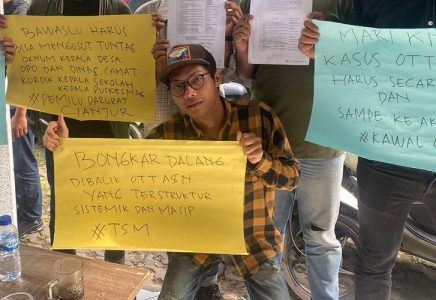 BAWASLU HARUS
BISA MENGUSUT TUNTAS
OKNUM KEPALA DESA,
OPD DAN DINAS, CAMAT
KORDIK, KEPALA SEKOLAH
KEPALA PUSKESMAS
#PEMILU DARURAT
CIANJUR
BONGKAR DALANG
DIBALIK OTT ASN
YANG TERSTRUKTUR
SISTEMIK DAN MASIP
#TSM
MARI KI
KASUS OTT
HARUS SECAR
DAN
SAMPE KE AK
#KAWAL